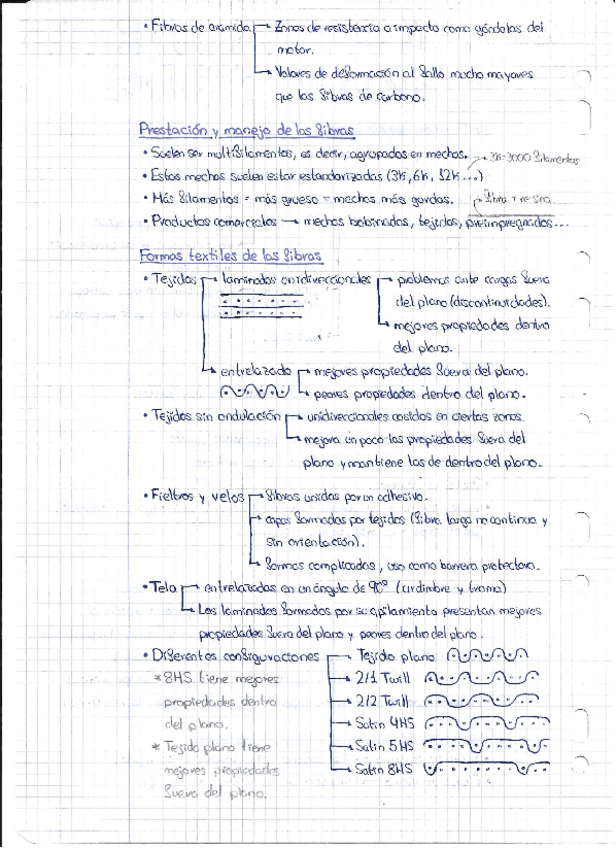 • Fibras de aramida → Zonas de resistencia a impacto como góndolas del
motor.
→ Valores de deformación al fallo mucho mayores
que las fibras de carbono.
Prestación y manejo de las fibras
• Suelen ser multifilamentos, es decir, agrupados en mechas. → 3K-3000 filamentos
• Estas mechas suelen estar estandarizadas (3K, 6K, 12K...)
• Más filamentos = más grueso = mechas más gordas. → fibra + resina
• Productos comerciales → mechas bobinadas, tejidos, preimpregnados...
Formas textiles de las fibras
• Tejidos → laminados unidireccionales → problemas ante cargas fuera
del plano (discontinuidades).
→ mejores propiedades dentro
del plano.
→ entrelazado → mejores propiedades fuera del plano.
→ peores propiedades dentro del plano.
• Tejidos sin ondulación → unidireccionales cosidos en ciertas zonas.
→ mejora un poco las propiedades fuera del
plano y mantiene las de dentro del plano.
• Fieltros y velos → fibras unidas por un adhesivo.
→ capas formadas por tejidos (fibra larga no continua y
sin orientación).
→ formas complicadas, uso como barrera protectora.
• Tela → entrelazadas en un ángulo de 90° (urdimbre y trama)
→ Los laminados formados por su apilamiento presentan mejores
propiedades fuera del plano y peores dentro del plano.
• Diferentes configuraciones → Tejido plano
* 8HS tiene mejores → 2/1 Twill
propiedades dentro → 2/2 Twill
del plano. → Satin 4HS
* Tejido plano tiene → Satin 5HS
mejores propiedades → Satin 8HS
fuera del plano.